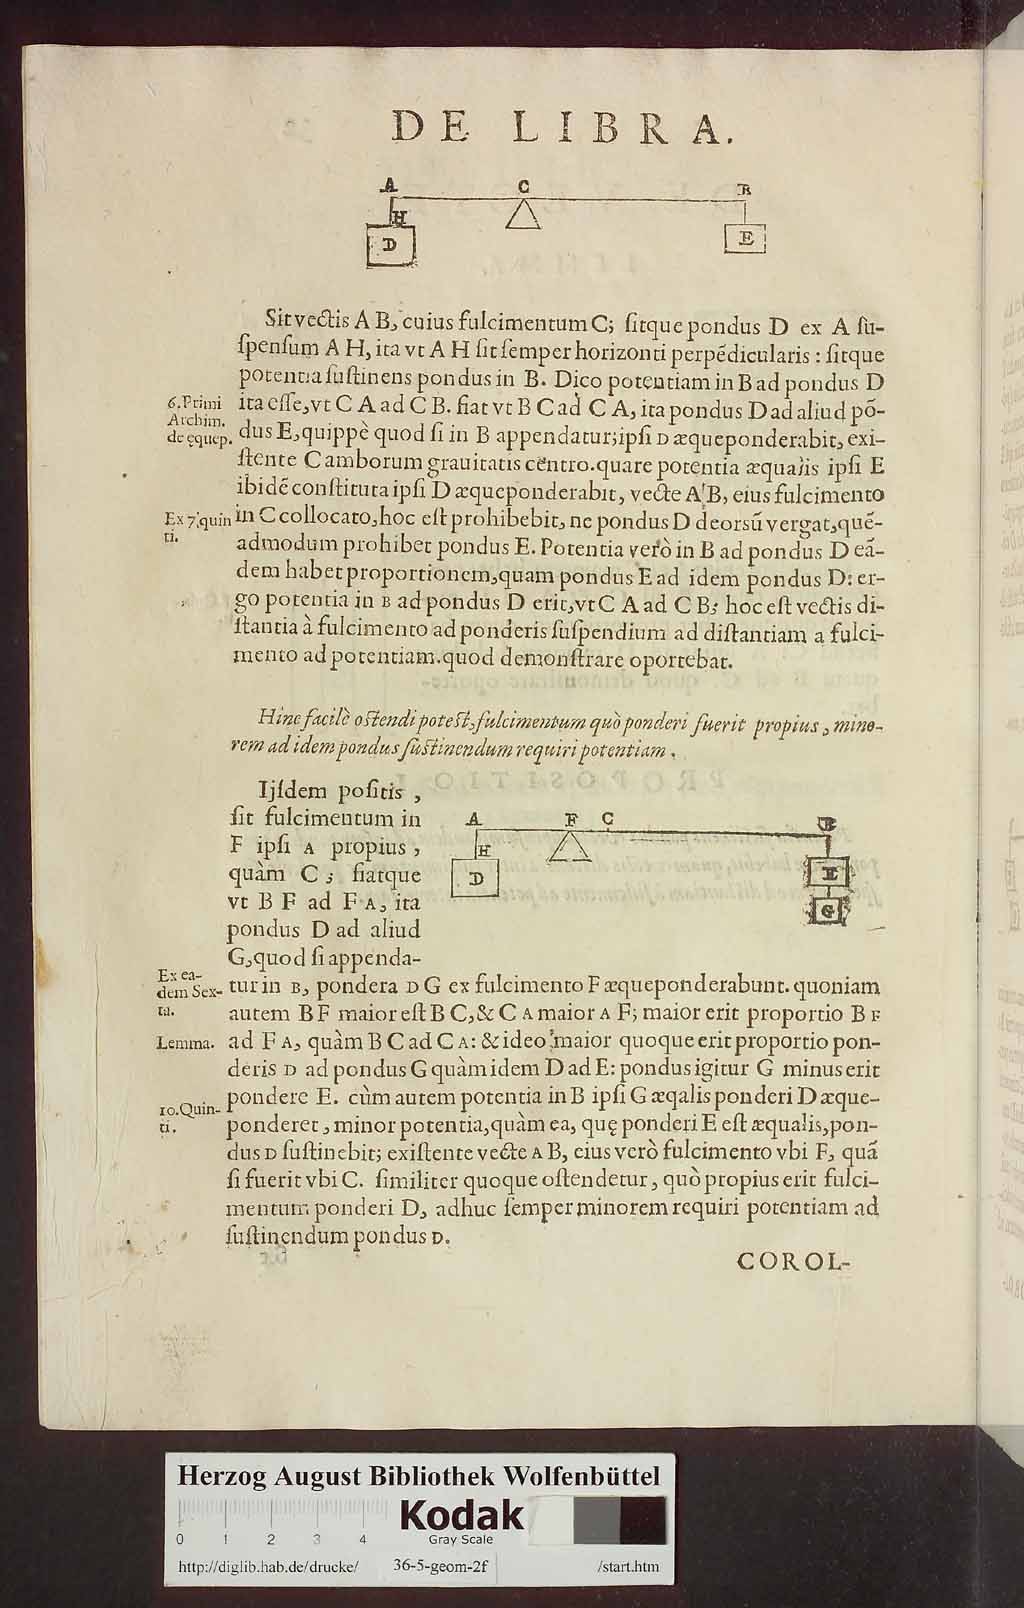 DE LIBRA.
A C B
H
D E
Sit vectis A B, cuius fulcimentum C; ſitque pondus D ex A ſu-
ſpenſum A H, ita vt A H ſit ſemper horizonti perpẽdicularis : ſitque
potentia ſuſtinens pondus in B. Dico potentiam in B ad pondus D
6. Primi
Archim.
de ęquep.
ita eſſe, vt C A ad C B. fiat vt B C ad C A, ita pondus D ad aliud põ-
dus E, quippè quod ſi in B appendatur; ipſi D æqueponderabit, exi-
ſtente C amborum grauitatis centro. quare potentia æqualis ipſi E
ibidẽ conſtituta ipſi D æqueponderabit, vecte A B, eius fulcimento
Ex 7. quin
ti.
in C collocato, hoc eſt prohibebit, ne pondus D deorsũ vergat, quẽ-
admodum prohibet pondus E. Potentia verò in B ad pondus D eã-
dem habet proportionem, quam pondus E ad idem pondus D: er-
go potentia in B ad pondus D erit, vt C A ad C B; hoc eſt vectis di-
ſtantia à fulcimento ad ponderis ſuſpendium ad diſtantiam a fulci-
mento ad potentiam. quod demonſtrare oportebat.
Hinc facilè oſtendi poteſt, fulcimentum quò ponderi fuerit propius, mino-
rem ad idem pondus ſuſtinendum requiri potentiam.
Ijſdem poſitis,
ſit fulcimentum in
F ipſi A propius,
quàm C; fiatque
vt B F ad F A, ita
pondus D ad aliud
G, quod ſi appenda-
A F C B
H
D E
G
Ex ea-
dem Sex-
ta.
Lemma.
tur in B, pondera D G ex fulcimento F æqueponderabunt. quoniam
autem B F maior eſt B C, & C A maior A F; maior erit proportio B F
ad F A, quàm B C ad C A: & ideo maior quoque erit proportio pon-
deris D ad pondus G quàm idem D ad E: pondus igitur G minus erit
10. Quin-
ti.
pondere E. cùm autem potentia in B ipſi G æqalis ponderi D æque-
ponderet, minor potentia, quàm ea, quę ponderi E eſt æqualis, pon-
dus D ſuſtinebit; exiſtente vecte A B, eius verò fulcimento vbi F, quã
ſi fuerit vbi C. ſimiliter quoque oſtendetur, quò propius erit fulci-
mentum ponderi D, adhuc ſemper minorem requiri potentiam ad
ſuſtinendum pondus D.
COROL-
Herzog August Bibliothek Wolfenbüttel
Kodak
Gray Scale
0 1 2 3 4
http://diglib.hab.de/drucke/ 36-5-geom-2f /start.htm